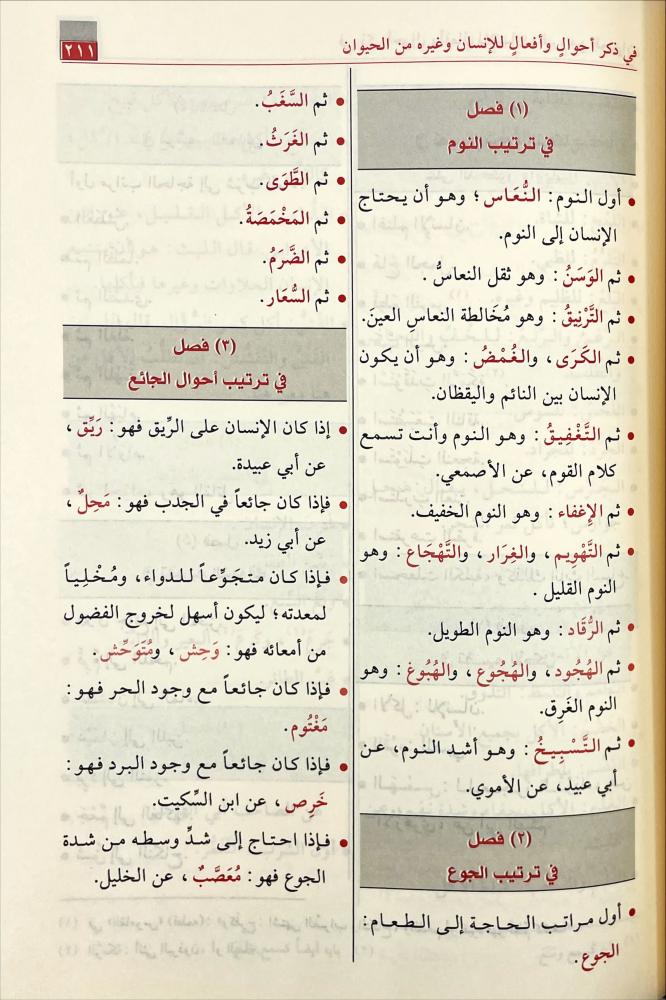 في ذكر أحوالٍ وأفعالٍ للإنسان وغيره من الحيوان
٢١١
(١) فصل
في ترتيب النوم
• أول النوم: النُّعَاس؛ وهو أن يحتاج
الإنسان إلى النوم.
• ثم الوَسَنُ: وهو ثقل النعاسُّ.
• ثم التَّرْنِيقُ: وهو مُخَالطة النعاسِ العينَ.
• ثم الكَرَى، والغُمْضُ: وهو أن يكون
الإنسان بين النائم واليقظان.
• ثم التَّغْفِيقُ: وهو النوم وأنت تسمع
كلام القوم، عن الأصمعي.
• ثم الإغفاء: وهو النوم الخفيف.
• ثم التَّهْوِيم، والغِرَار، والتَّهْجَاع: وهو
النوم القليل.
• ثم الرُّقَاد: وهو النوم الطويل.
• ثم الهُجُود، والهُجُوع، والهُبُوغ: وهو
النوم الغَرِق.
• ثم التَّسْبِيخُ: وهو أشد النوم، عن
أبي عبيد، عن الأموي.
(٢) فصل
في ترتيب الجوع
• أول مراتب الحاجة إلى الطعام:
الجوع.
• ثم السَّغَبُ.
• ثم الغَرَثُ.
• ثم الطَّوَى.
• ثم المَخْمَصَةُ.
• ثم الضَّرَمُ.
• ثم السُّعَار.
(٣) فصل
في ترتيب أحوال الجائع
• إذا كان الإنسان على الرِّيق فهو: رَيِّق،
عن أبي عبيدة.
• فإذا كان جائعاً في الجدب فهو: مَحِلٌ،
عن أبي زيد.
• فإذا كان متجَوِّعاً للدواء، ومُخْلِياً
لمعدته؛ ليكون أسهل لخروج الفضول
من أمعائه فهو: وَحِش، ومُتَوَحِّش.
• فإذا كان جائعاً مع وجود الحر فهو:
مَغْتُوم.
• فإذا كان جائعاً مع وجود البرد فهو:
خَرِص، عن ابن السِّكيت.
• فإذا احتاج إلى شدِّ وسطه من شدة
الجوع فهو: مُعَصَّبٌ، عن الخليل.